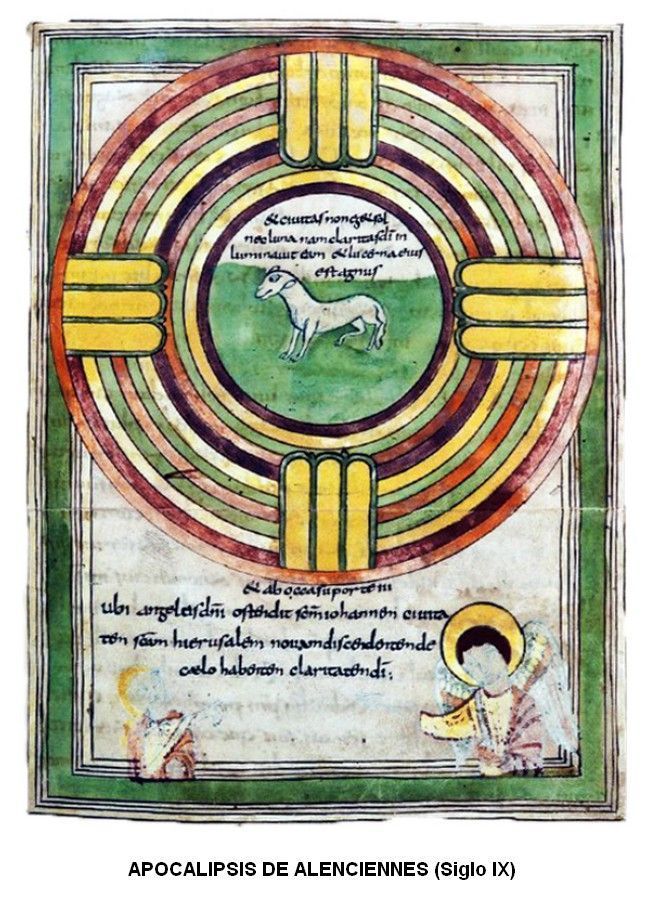 & civitas non eg& sol
nec luna nam claritas di in
luminavit eam & lucerna eius
est agnus
& ab occasu porte iii
Ubi angelus dni ostendit scm iohannen civita
tem scam hierusalem novam discendentem de
caelo habentem claritatem di;
APOCALIPSIS DE ALENCIENNES (Siglo IX)